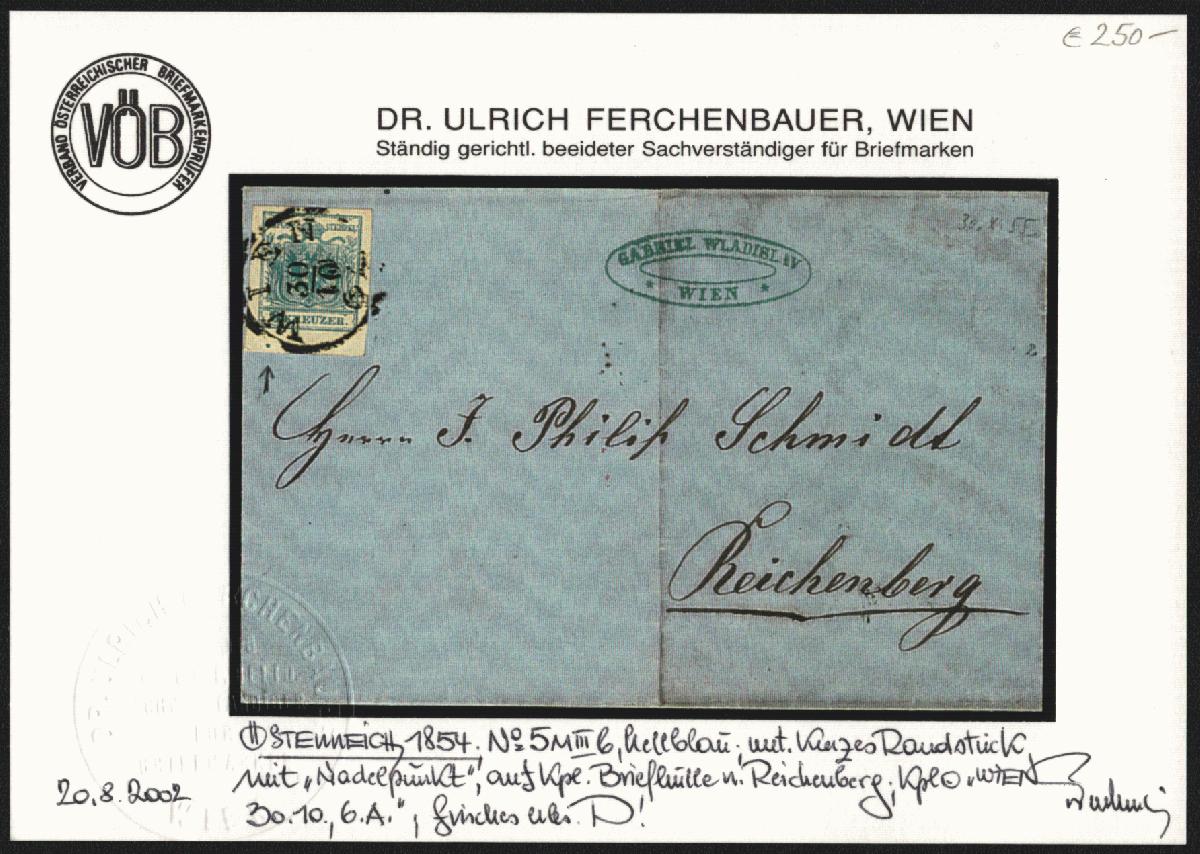 € 250.–
VERBAND ÖSTERREICHISCHER BRIEFMARKENPRÜFER
VÖB
DR. ULRICH FERCHENBAUER, WIEN
Ständig gerichtl. beeideter Sachverständiger für Briefmarken
30. X. 55
STEMPEL
WIEN
30
10
6A
KREUZER.
GABRIEL WLADISLAV
* WIEN *
Herrn J. Philip Schmidt
Reichenberg
ÖSTERREICH, 1854. No 5 M III b, hellblau, unt. kurzes Randstück
mit „Nadelpunkt", auf kpl. Briefhülle n. Reichenberg; Kpl „WIEN
30.10., 6.A.", frisches
20.8.2002